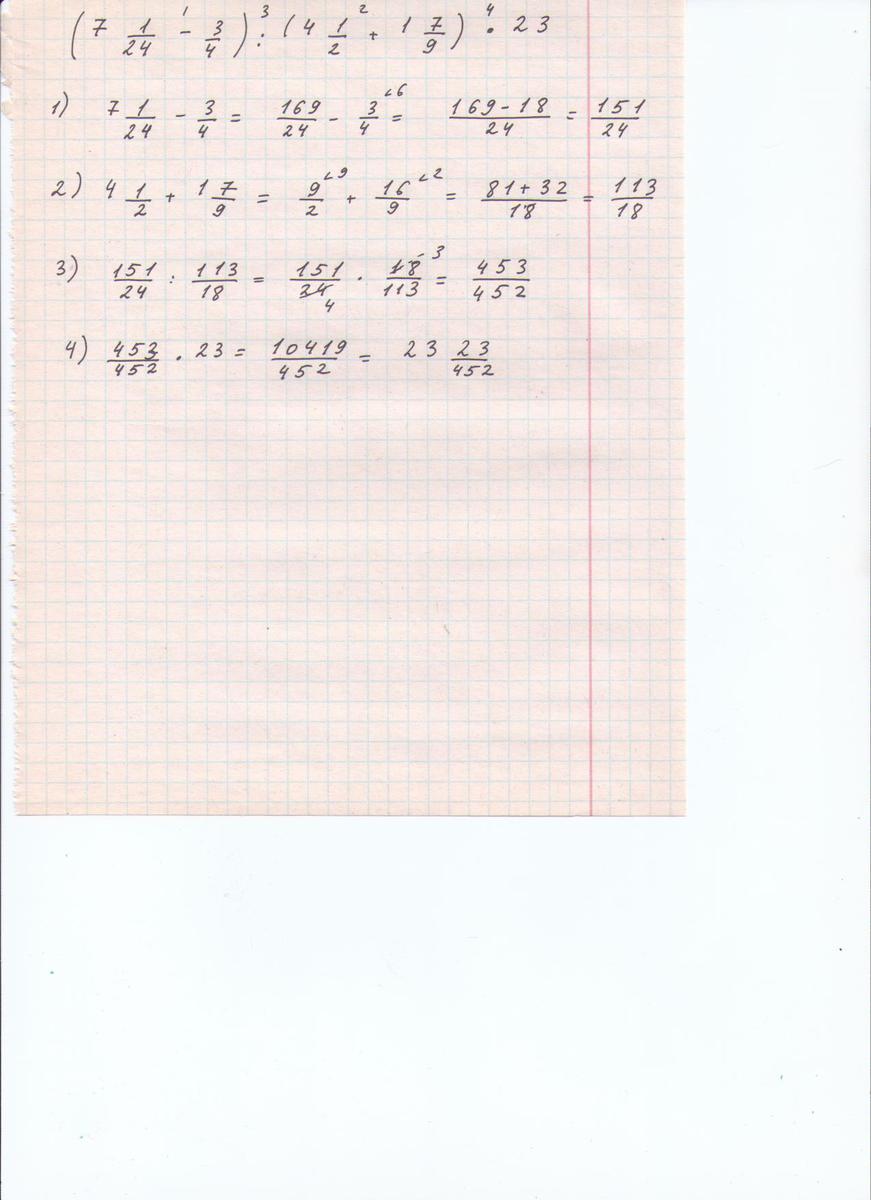 (7 1/24 -¹ 3/4) :³ (4 1/2 +² 1 7/9) ·⁴ 23
1) 7 1/24 - 3/4 = 169/24 - 3/4 ∟6 = 169-18/24 = 151/24
2) 4 1/2 + 1 7/9 = 9/2 ∟9 + 16/9 ∟2 = 81+32/18 = 113/18
3) 151/24 : 113/18 = 151/24 4 · 18/113 3 = 453/452
4) 453/452 · 23 = 10419/452 = 23 23/452